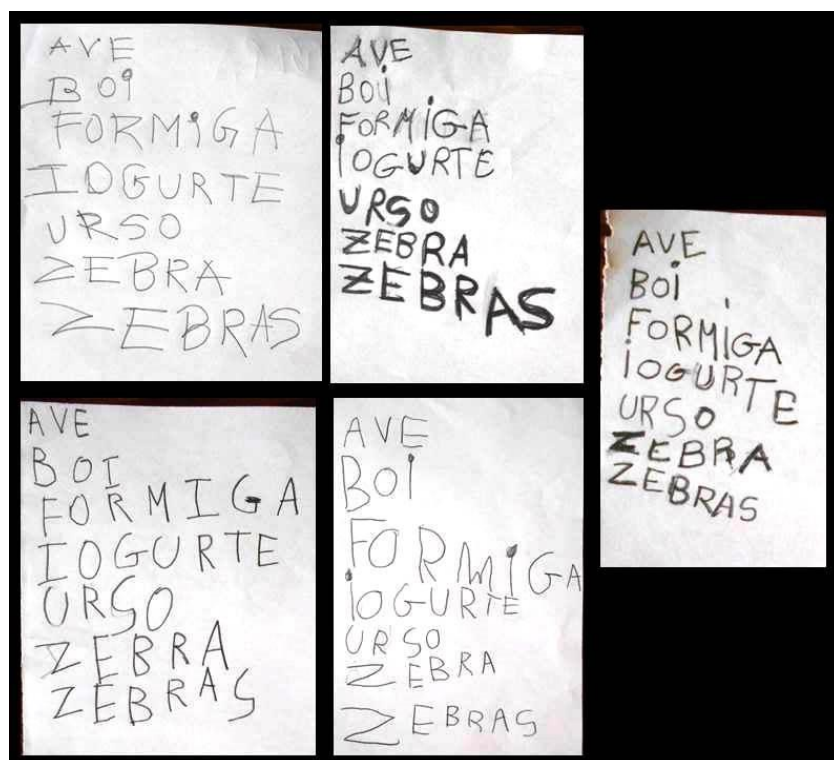 AVE
BOI
FORMIGA
IOGURTE
URSO
ZEBRA
ZEBRAS
AVE
BOI
FORMIGA
IOGURTE
URSO
ZEBRA
ZEBRAS
AVE
BOI
FORMIGA
IOGURTE
URSO
ZEBRA
ZEBRAS
AVE
BOI
FORMIGA
IOGURTE
URSO
ZEBRA
ZEBRAS
AVE
BOI
FORMIGA
IOGURTE
URSO
ZEBRA
ZEBRAS